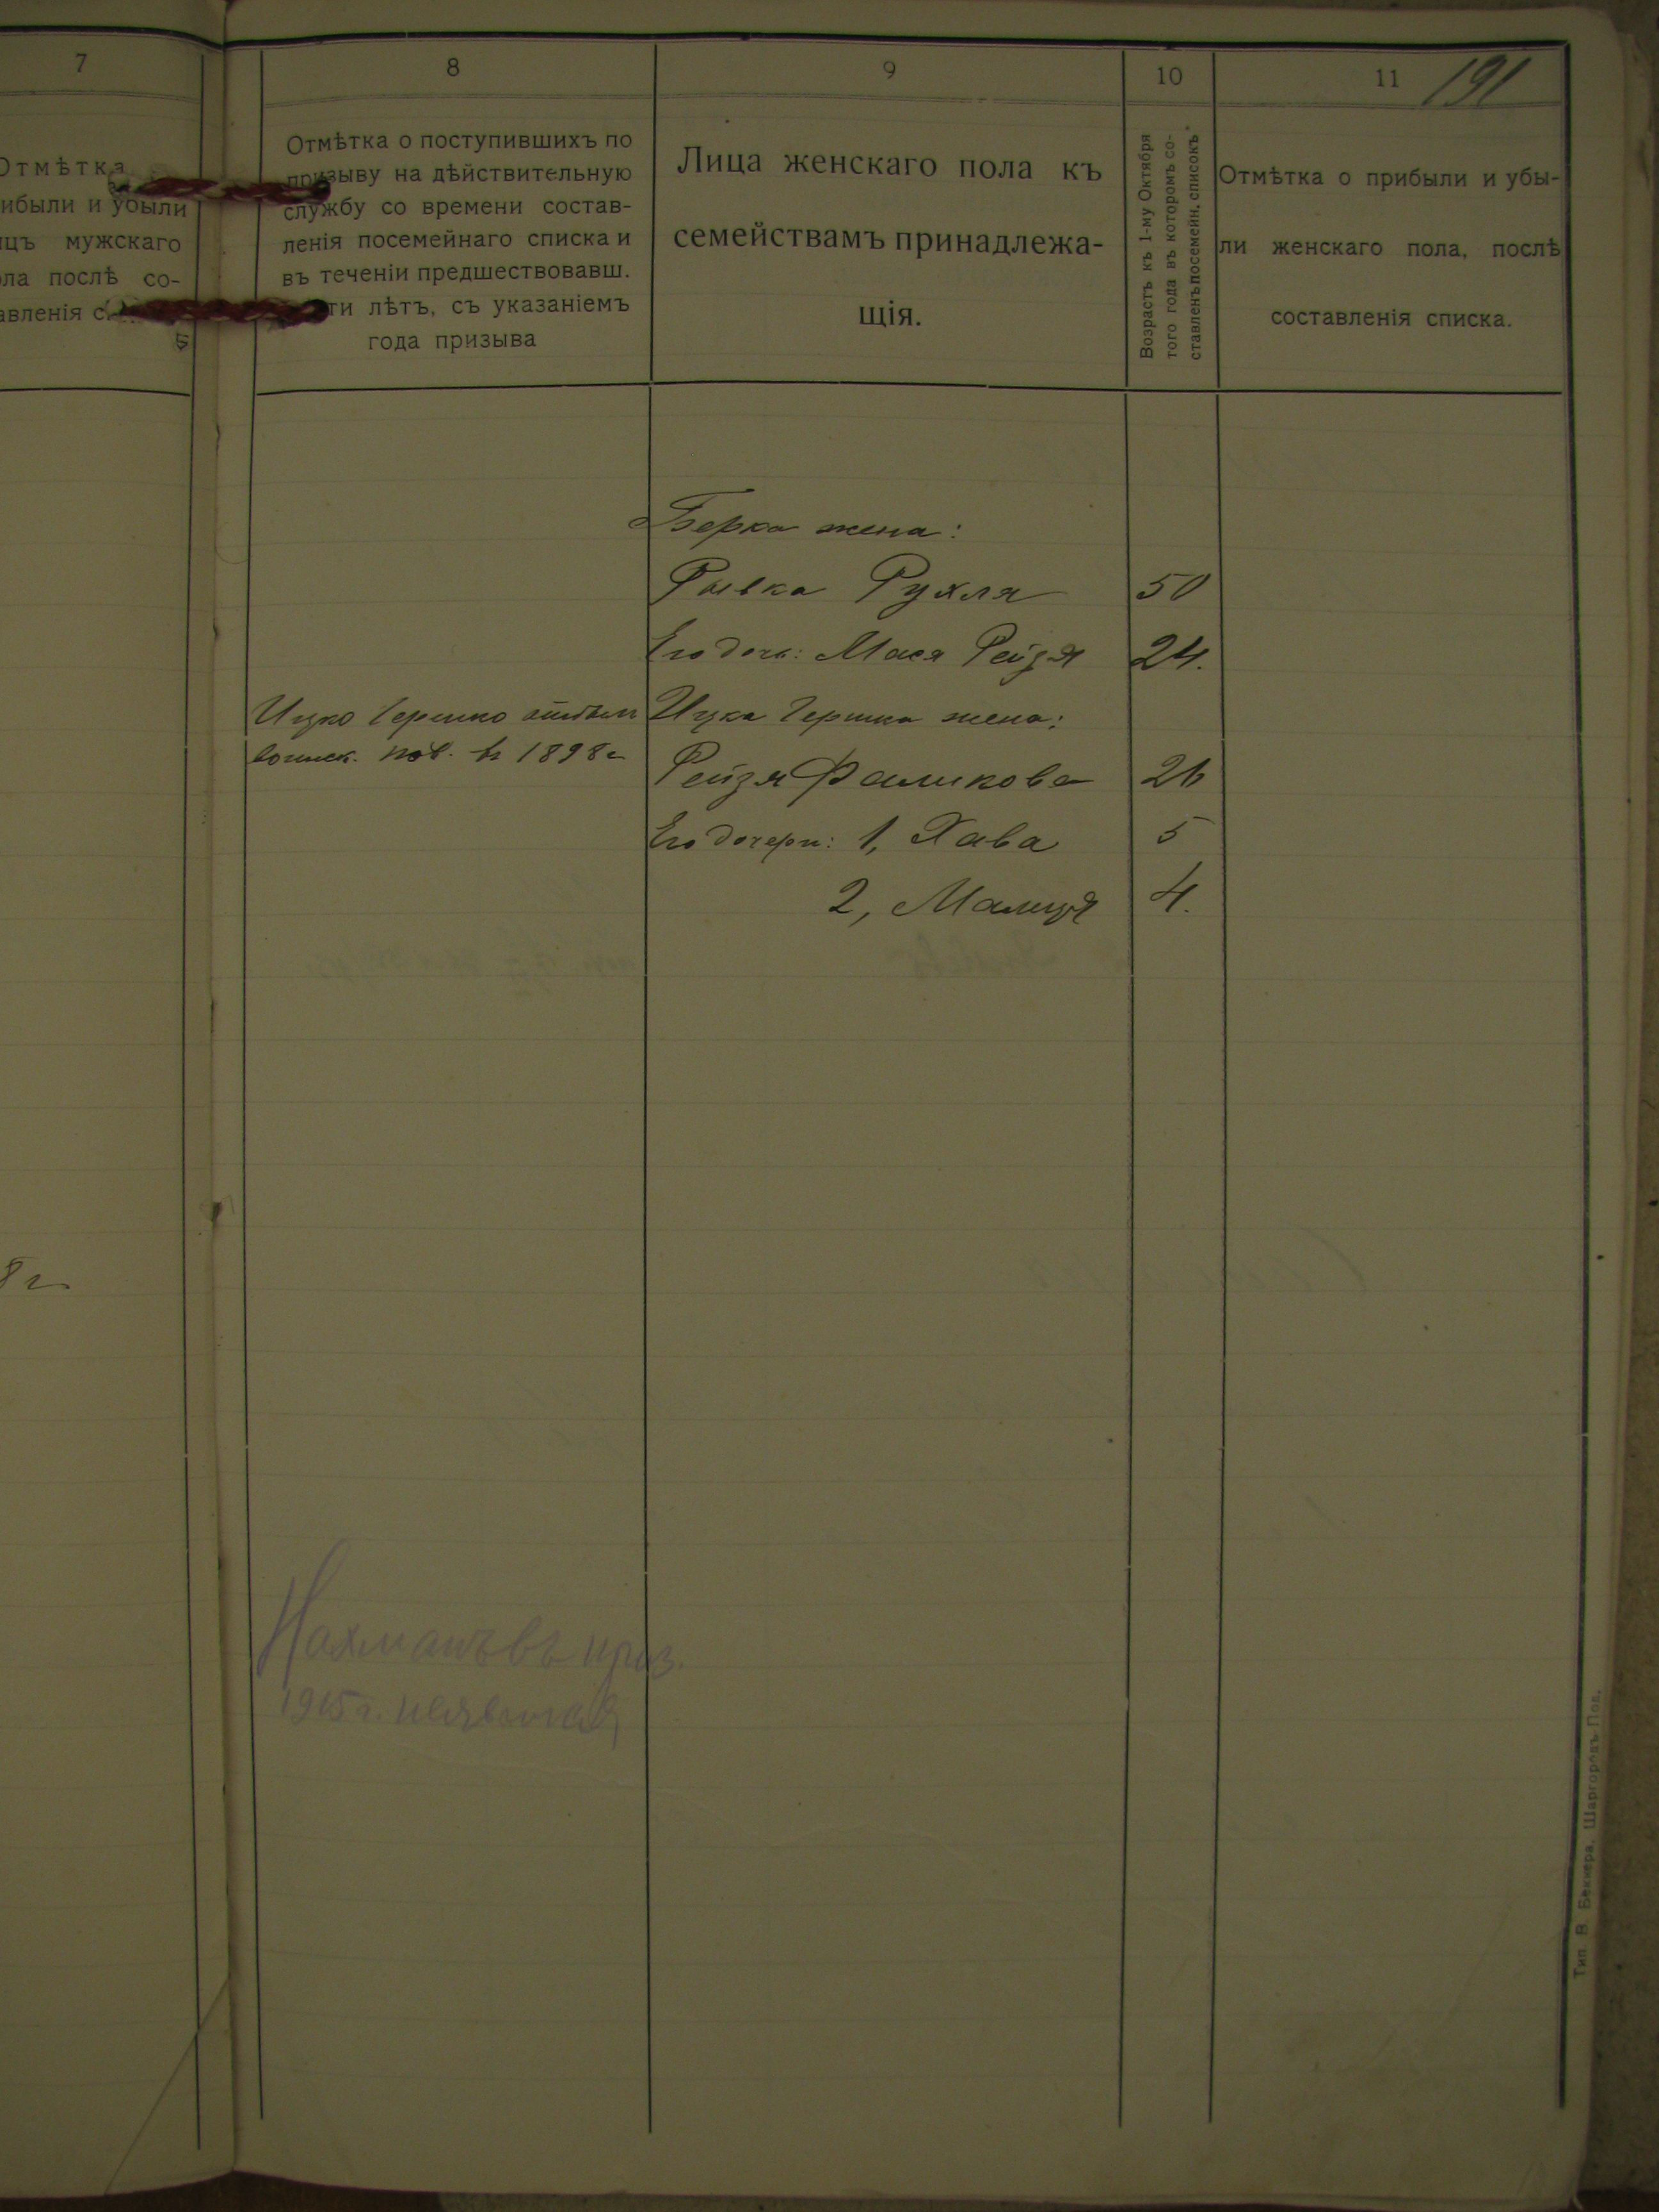 7
8
9
10
11
191
Отмѣтка
ибыли и убыли
ицъ мужскаго
ола послѣ со-
авленія
Отмѣтка о поступившихъ по
призыву на дѣйствительную
службу со времени состав-
ленія посемейнаго списка и
въ теченіи предшествовавш.
ти лѣтъ, съ указаніемъ
года призыва
Лица женскаго пола къ
семействамъ принадлежа-
щія.
Возрастъ къ 1-му Октября
того года въ которомъ со-
ставленъ посемейн. списокъ
Отмѣтка о прибыли и убы-
ли женскаго пола, послѣ
составленія списка.
Берка жена:
Рывка Рухля 50
Его дочь: Мася Рейзя 24.
Ицко Гершко отбыл
воинск. пов. в 1898 г
Ицка Гершка жена:
Рейзя Фаликова 26
Его дочери: 1, Хава 5
2, Малця 4.
8 г
Нахманъ въ приз.
1915 г. неявился
Тип. В. Беккера, Шаргородъ-Под.